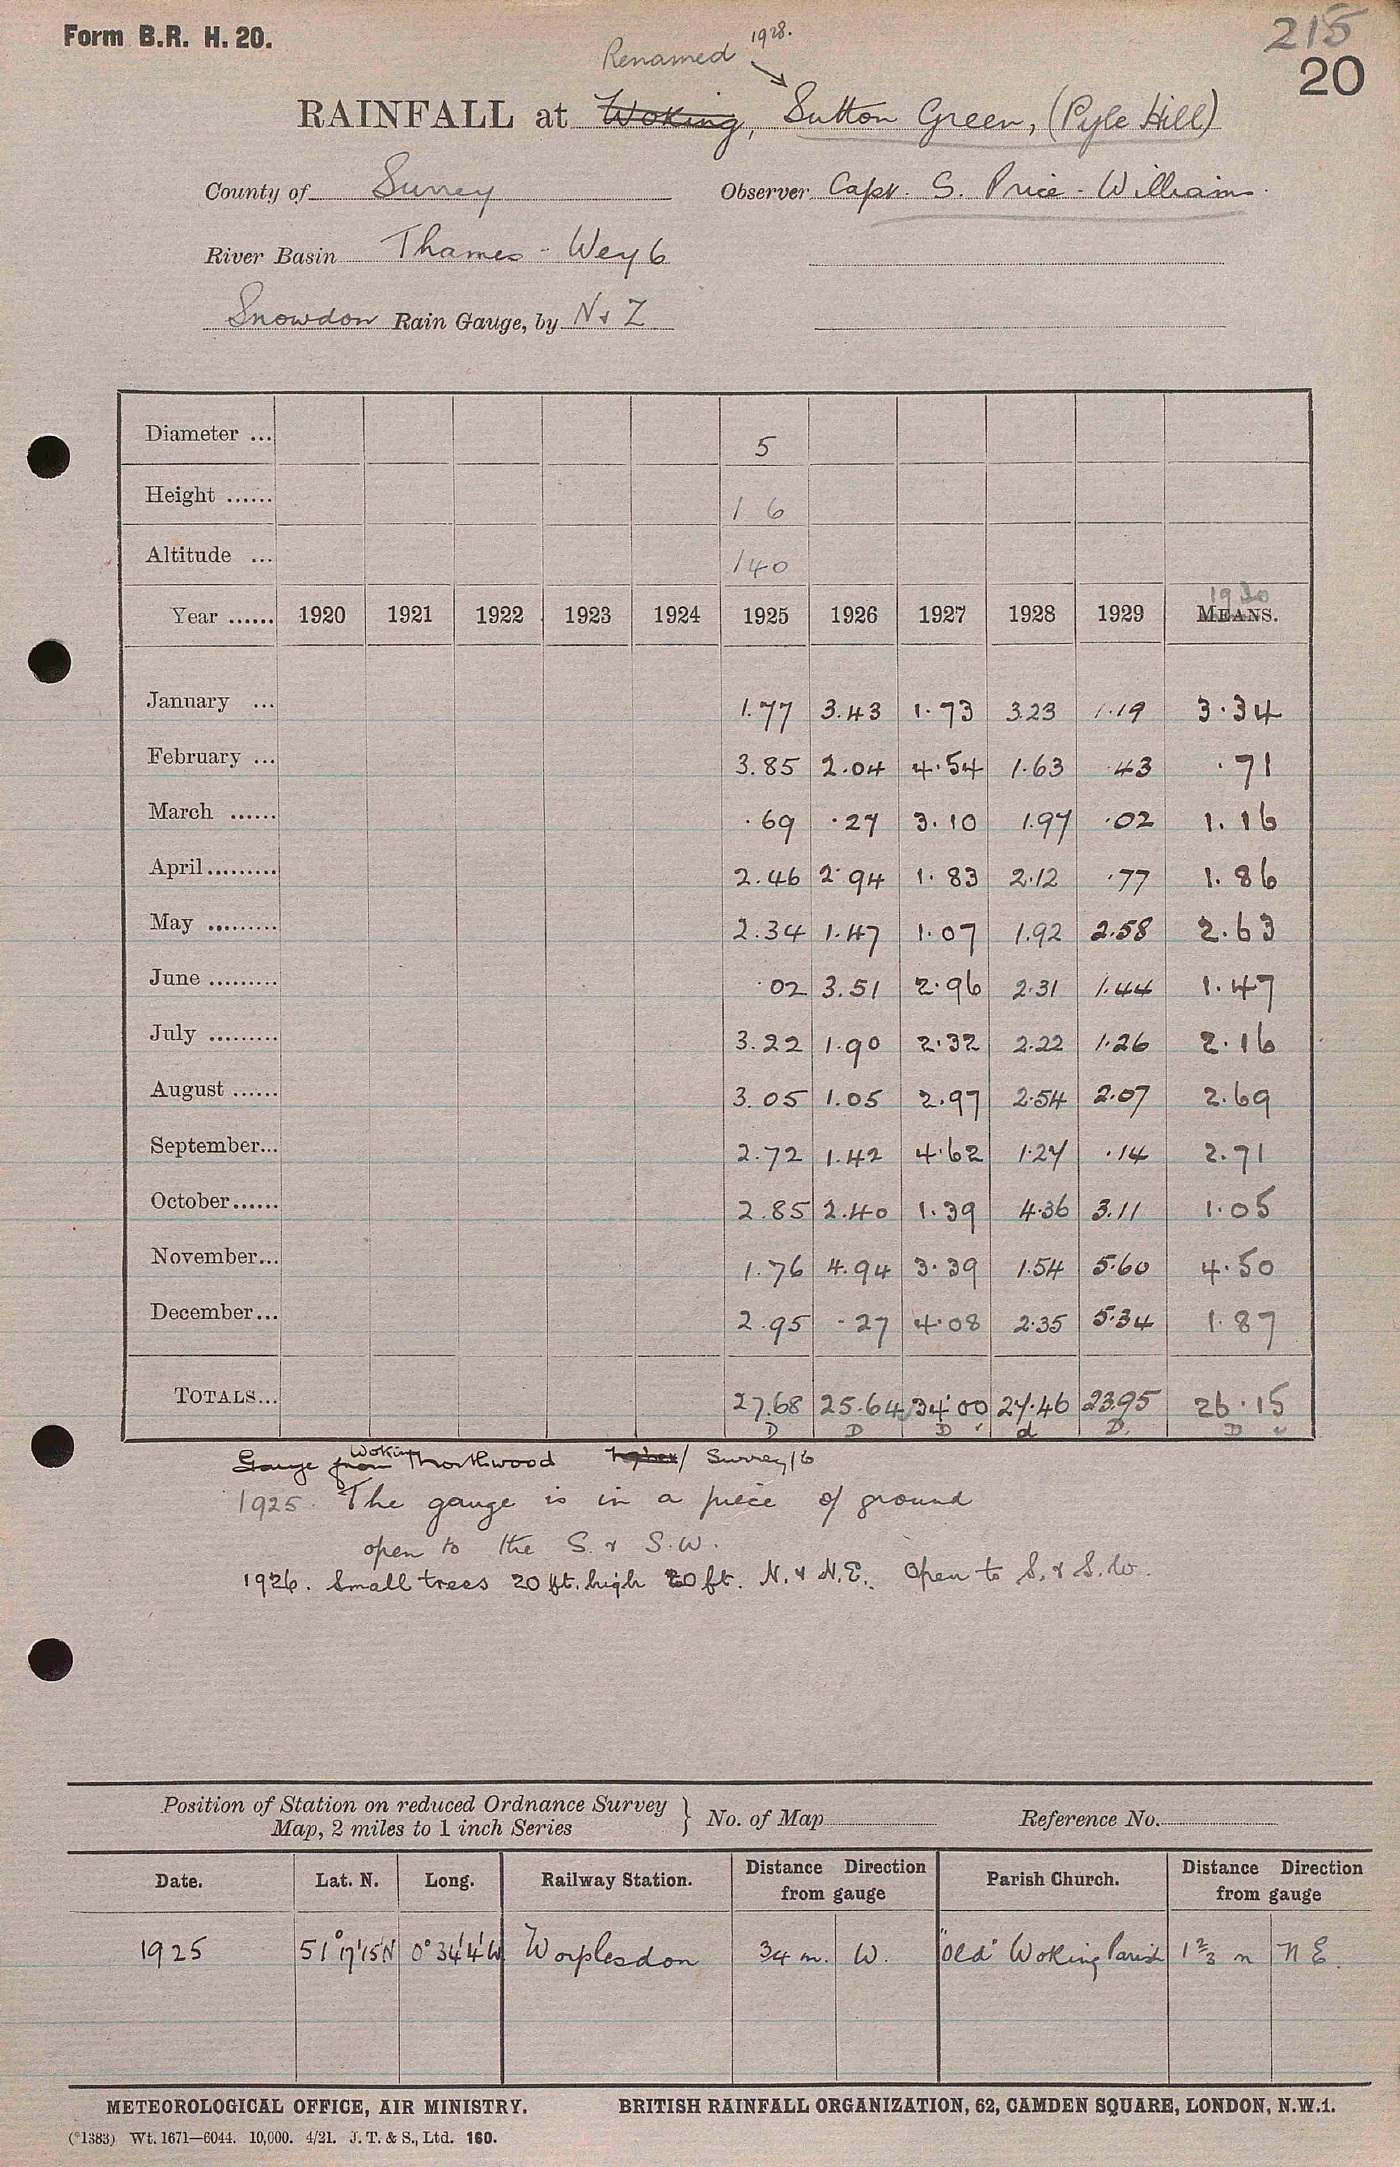 Form B.R. H. 20.
215
20
Renamed 1928.
RAINFALL at Woking, Sutton Green, (Pyle Hill)
County of Surrey Observer Capt. S. Price-Williams.
River Basin Thames - Wey 6
Snowdon Rain Gauge, by N & Z
Diameter ... 5
Height ...... 1 6
Altitude ... 140
Year ...... 1920 1921 1922 1923 1924 1925 1926 1927 1928 1929 MEANS. 1930
January ... 1.77 3.43 1.73 3.23 1.19 3.34
February ... 3.85 2.04 4.54 1.63 .43 .71
March ...... .69 .27 3.10 1.97 .02 1.16
April ......... 2.46 2.94 1.83 2.12 .77 1.86
May ......... 2.34 1.47 1.07 1.92 2.58 2.63
June ......... .02 3.51 2.96 2.31 1.44 1.47
July ......... 3.22 1.90 2.32 2.22 1.26 2.16
August ...... 3.05 1.05 2.97 2.54 2.07 2.69
September... 2.72 1.42 4.62 1.27 .14 2.71
October...... 2.85 2.40 1.39 4.36 3.11 1.05
November... 1.76 4.94 3.39 1.54 5.60 4.50
December... 2.95 .27 4.08 2.35 5.34 1.87
TOTALS... 27.68 25.64 34.00 27.46 23.95 26.15
D D D d D. D
Gauge from Woking Northwood / Surrey/6
1925. The gauge is in a piece of ground
open to the S. & S.W.
1926. Small trees 20 ft. high 20 ft. N. & N.E. Open to S. & S.W.
Position of Station on reduced Ordnance Survey
Map, 2 miles to 1 inch Series } No. of Map Reference No.
Date. Lat. N. Long. Railway Station. Distance Direction from gauge Parish Church. Distance Direction from gauge
1925 51° 17' 15" N 0° 34' 4" W Worplesdon 3/4 m. W. "Old" Woking Parish 1 2/3 m N E.
METEOROLOGICAL OFFICE, AIR MINISTRY. BRITISH RAINFALL ORGANIZATION, 62, CAMDEN SQUARE, LONDON, N.W.1.
(*1383) Wt. 1671—6044. 10,000. 4/21. J. T. & S., Ltd. 160.